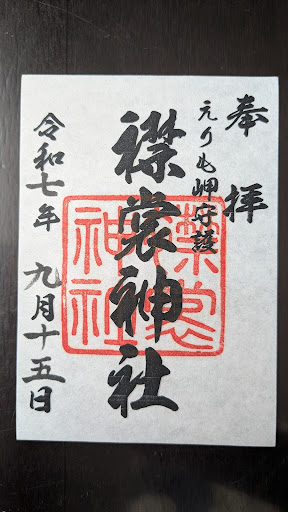 奉拝
えりも岬守護
襟裳神社
襟裳神社
令和七年 九月十五日